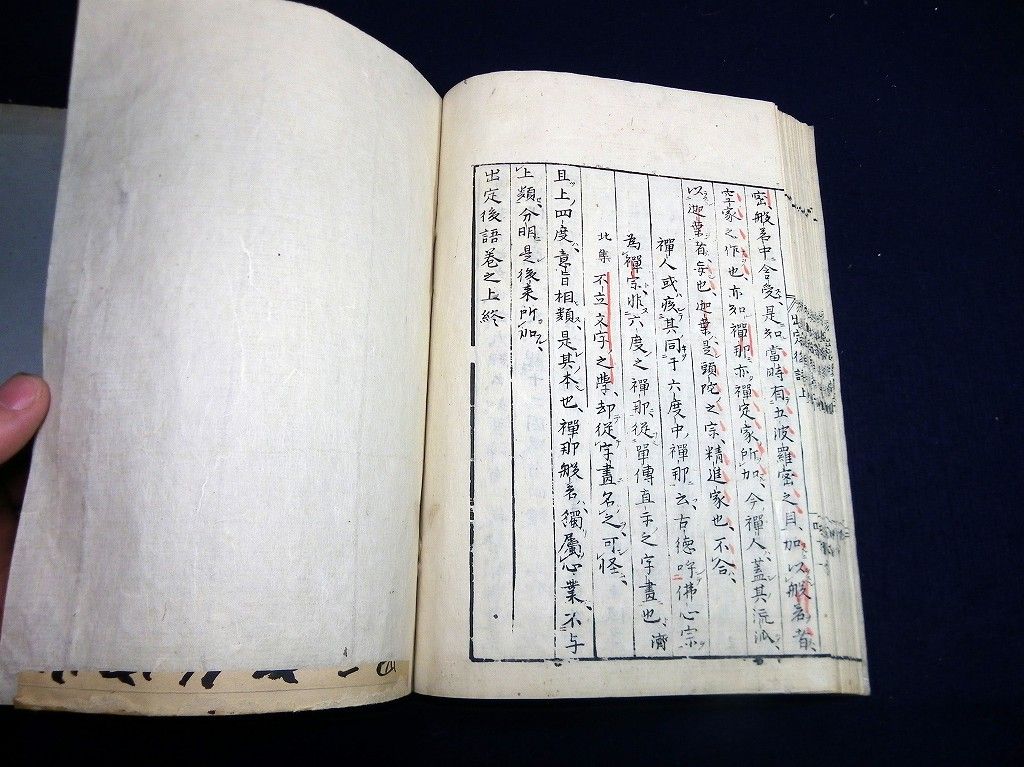 密般若中含受、是知當時有五波羅密之目、加以般若者、
空家之作也、亦知禪那亦禪定家所加、今禪人蓋其流派、
以迦葉者妄也、迦葉是頭陀之宗、精進家也、不合、
禪人或疾其同于六度中禪那云、古德呼佛心宗
為禪宗、非六度之禪那、從單傳直示之字畫也、濟
北集 不立文字之弊、却從字畫名之、可怪、
且上四度、意旨相類、是其本也、禪那般若、獨屬心業、不与
上類、分明是後来所加、
出定後語巻之上終
出定後語 上